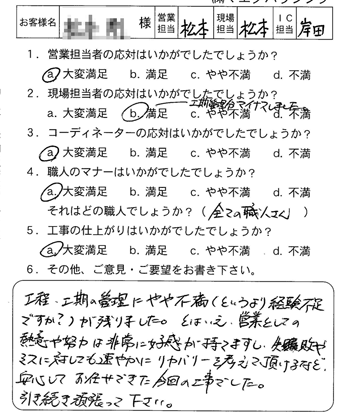 お客様名 様 営業担当 松本 現場担当 松本 IC担当 岸田
1．営業担当者の応対はいかがでしたでしょうか？
a. 大変満足 b. 満足 c. やや不満 d. 不満
2．現場担当者の応対はいかがでしたでしょうか？
工期管理分マイナスしました
a. 大変満足 b. 満足 c. やや不満 d. 不満
3．コーディネーターの応対はいかがでしたでしょうか？
a. 大変満足 b. 満足 c. やや不満 d. 不満
4．職人のマナーはいかがでしたでしょうか？
a. 大変満足 b. 満足 c. やや不満 d. 不満
それはどの職人でしょうか？（全ての職人さん）
5．工事の仕上がりはいかがでしたでしょうか？
a. 大変満足 b. 満足 c. やや不満 d. 不満
6．その他、ご意見・ご要望をお書き下さい。
工程、工期の管理にやや不満（というより経験不足
ですか？）が残りました。とはいえ、営業としての
熱意や努力は非常に好感が持てますし、失敗や
ミスに対しても速やかにリカバリーを考えて頂けるなど、
安心してお任せできた今回の工事でした。
引き続き頑張って下さい。